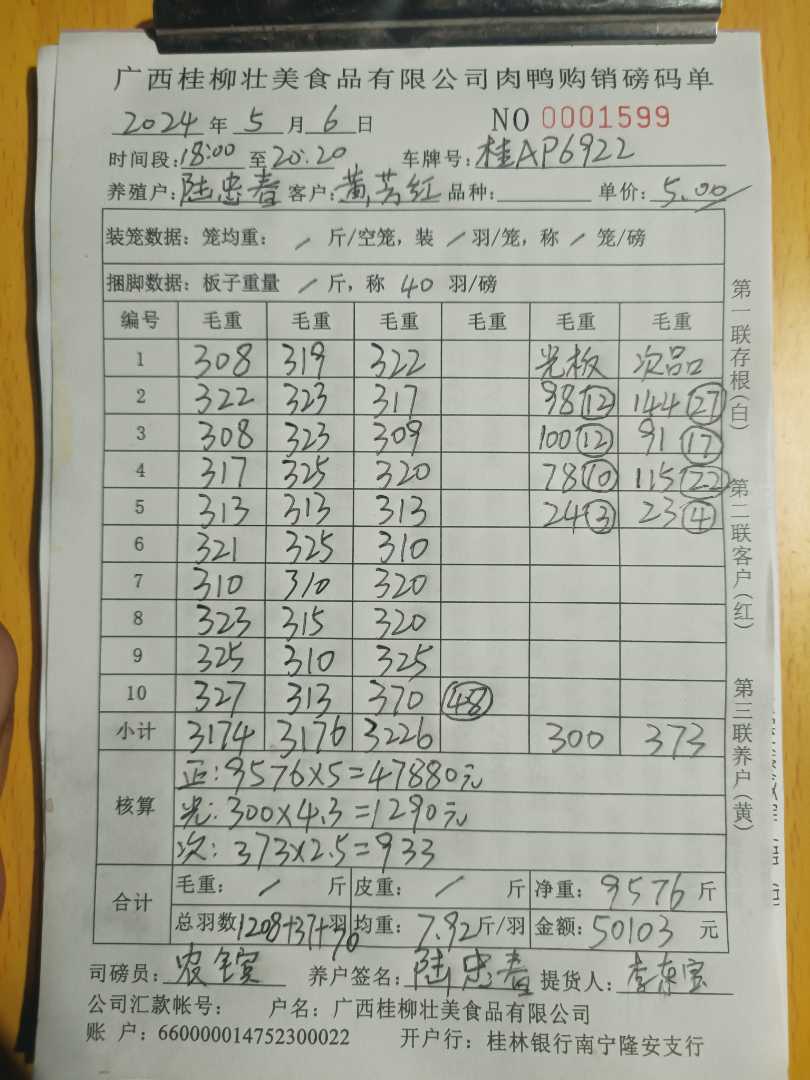 广西桂柳壮美食品有限公司肉鸭购销磅码单
2024 年 5 月 6 日 NO 0001599
时间段:18:00 至 20:20 车牌号:桂AP6922
养殖户:陆忠春 客户:黄芸红 品种: 单价:5.00
装笼数据:笼均重: / 斤/空笼,装 / 羽/笼,称 / 笼/磅
捆脚数据:板子重量 / 斤,称 40 羽/磅
编号 毛重 毛重 毛重 毛重 毛重 毛重
1 308 319 322 光板 次品
2 322 323 317 98 12 144 27
3 308 323 309 100 12 91 17
4 317 325 320 78 10 115 22
5 313 313 313 24 3 23 4
6 321 325 310
7 310 310 320
8 323 315 320
9 325 310 325
10 327 313 370 48
小计 3174 3176 3226 300 373
核算
正:9576×5=47880元
光:300×4.3=1290元
次:373×2.5=933
合计
毛重: / 斤 皮重: / 斤 净重:9576 斤
总羽数1208+37+70羽 均重:7.92斤/羽 金额:50103 元
司磅员: 养户签名:陆忠春 提货人:
公司汇款帐号: 户名:广西桂柳壮美食品有限公司
账 户:660000014752300022 开户行:桂林银行南宁隆安支行
第一联存根(白)
第二联客户(红)
第三联养户(黄)